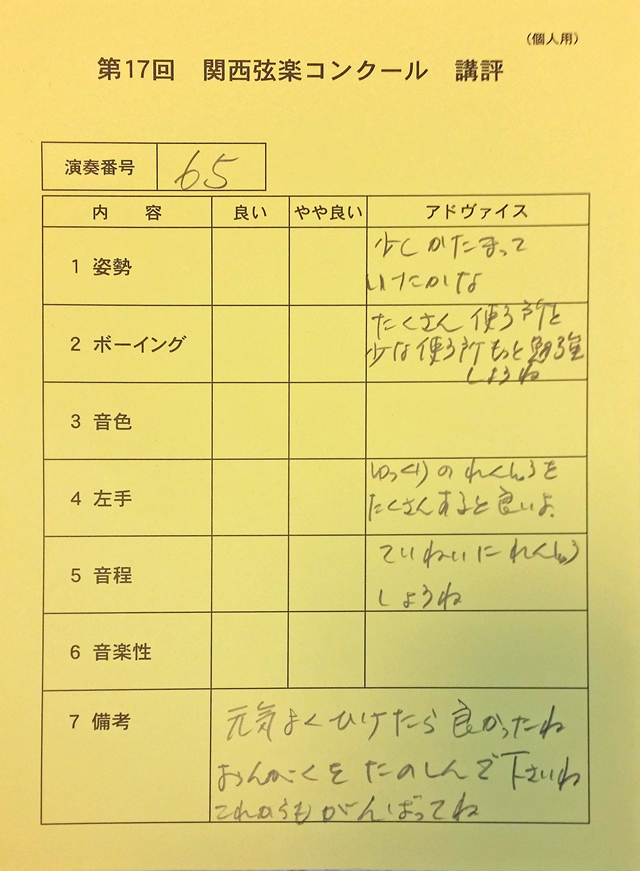 (個人用)
第17回 関西弦楽コンクール 講評
演奏番号 65
内 容 良い やや良い アドヴァイス
1 姿勢
少しかたまって
いたかな
2 ボーイング
たくさん使う所と
少な使う所もっと勉強
しようね
3 音色
4 左手
ゆっくりのれんしゅうを
たくさんすると良いよ。
5 音程
ていねいにれんしゅう
しようね
6 音楽性
7 備考
元気よくひけたら良かったね
おんがくをたのしんで下さいね
これからもがんばってね